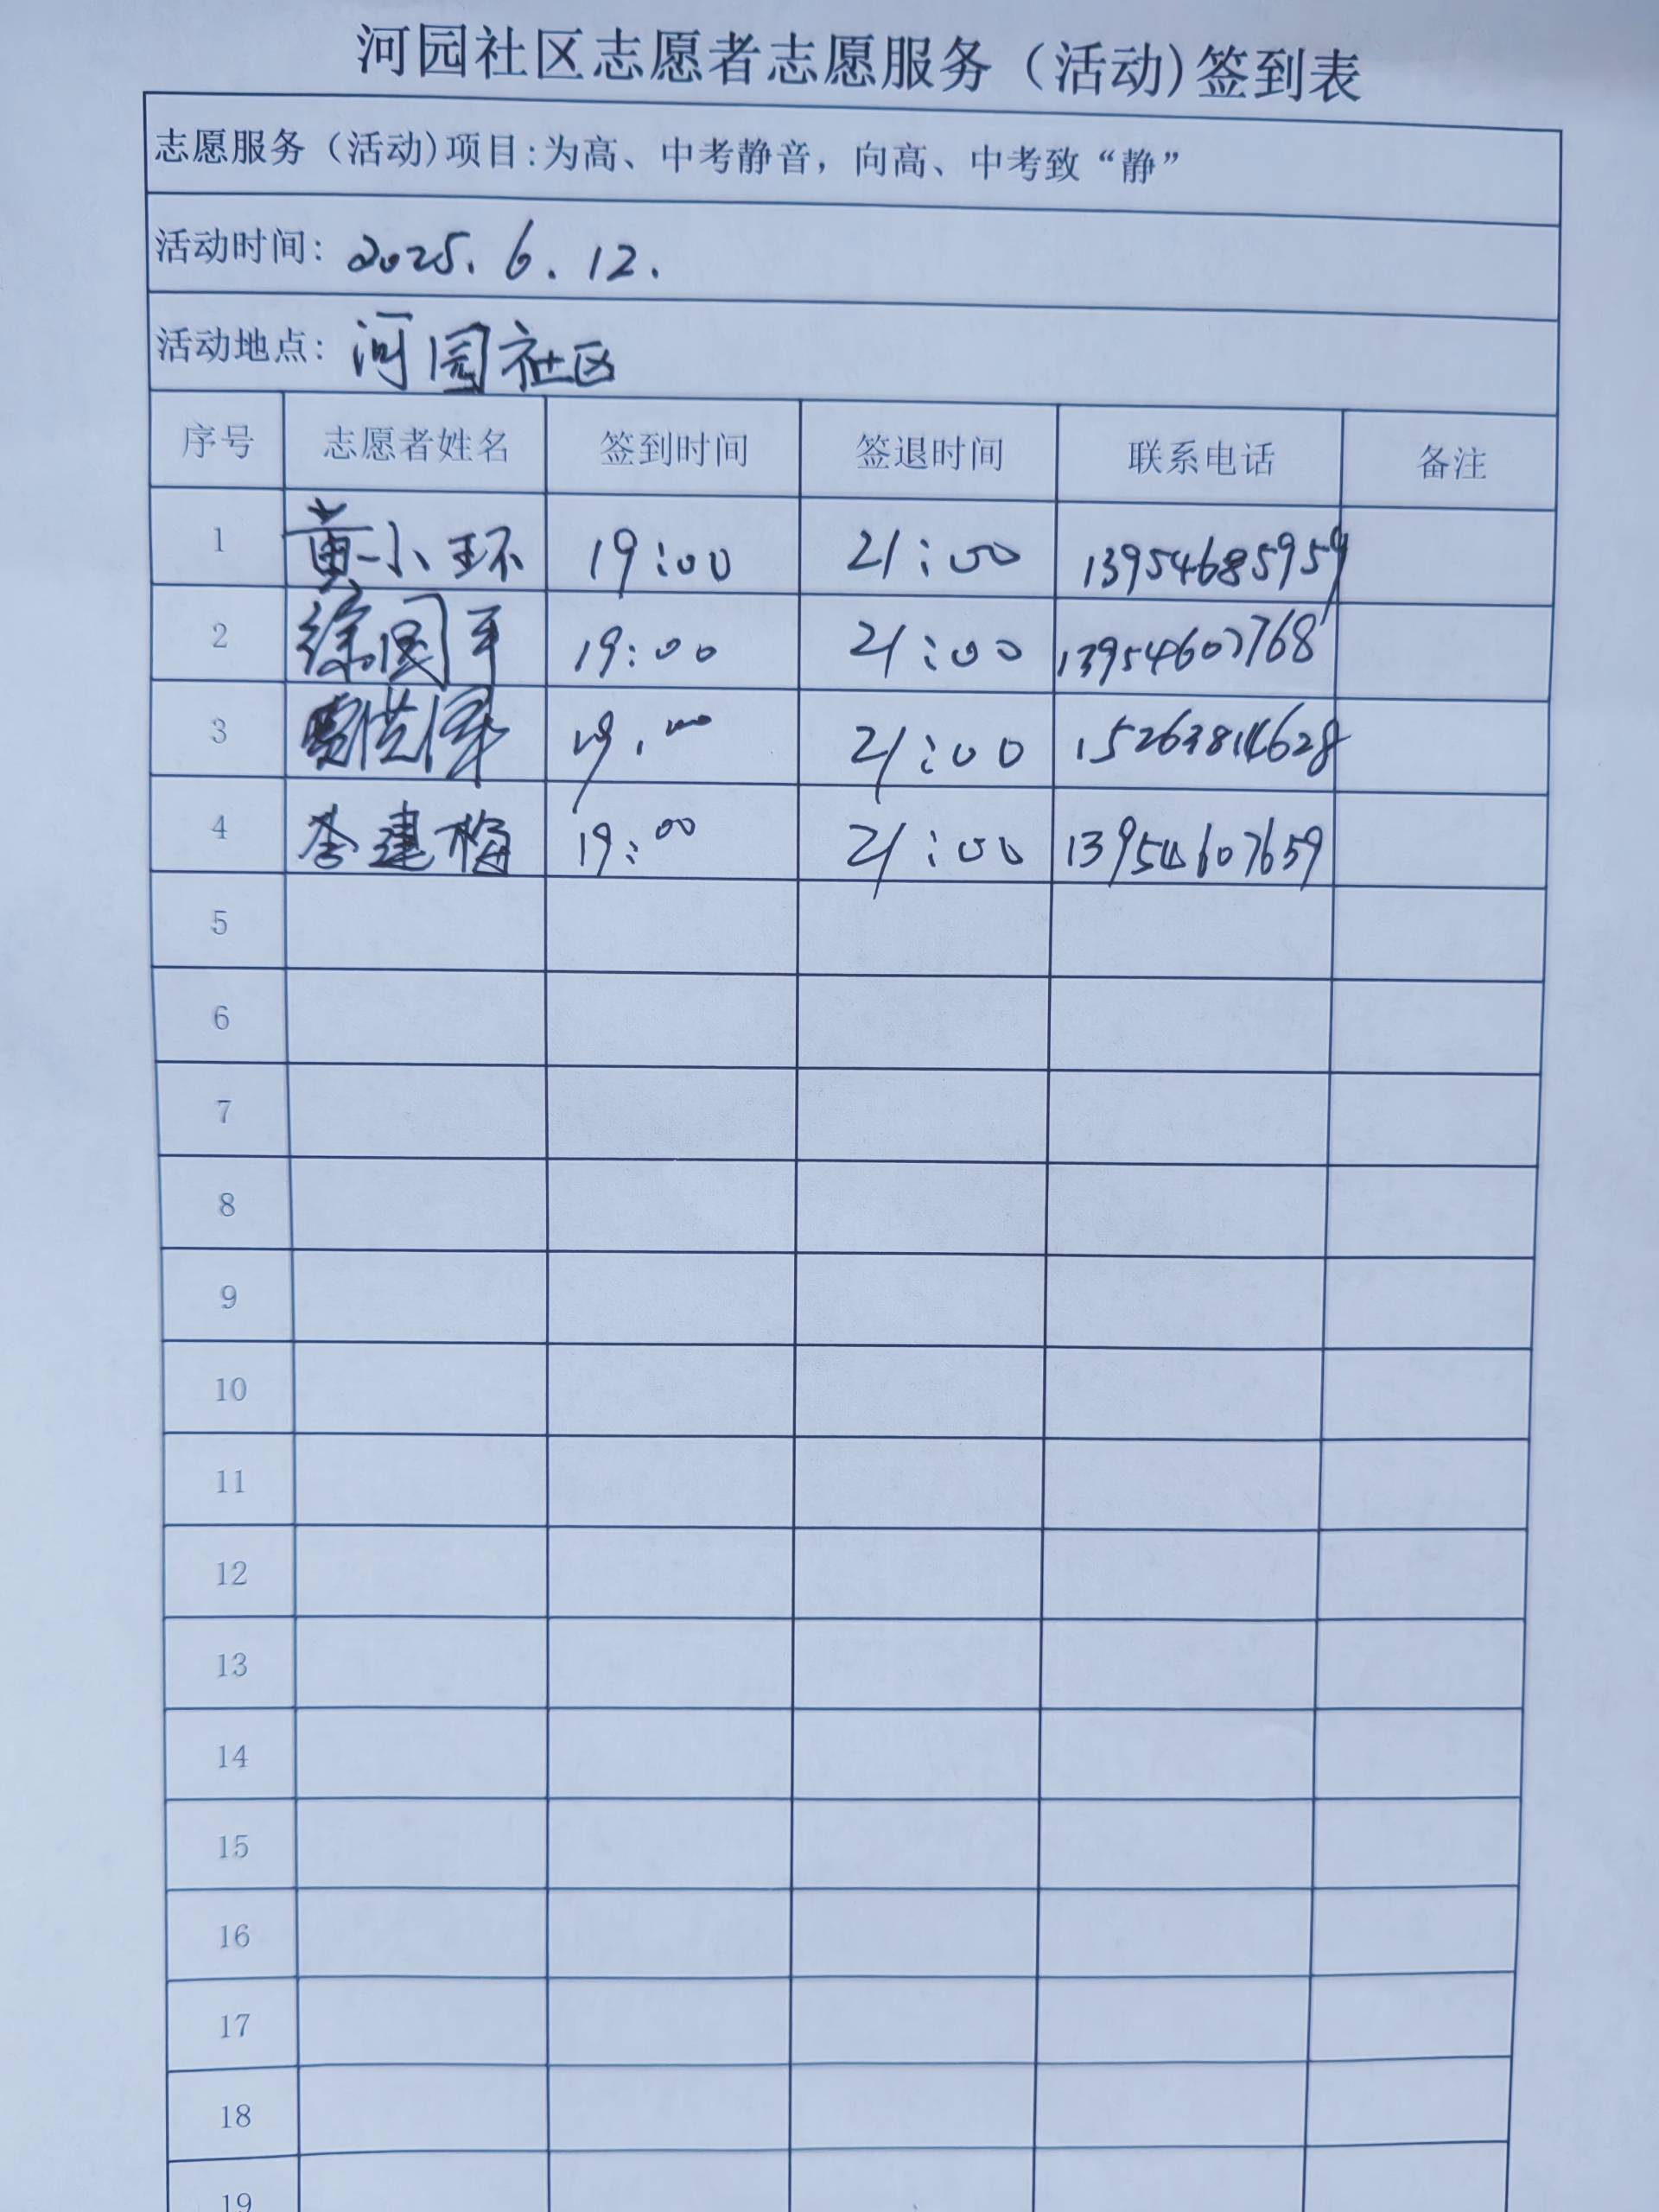 河园社区志愿者志愿服务（活动)签到表
志愿服务（活动)项目:为高、中考静音，向高、中考致“静”
活动时间: 2025.6.12.
活动地点: 河园社区
序号 志愿者姓名 签到时间 签退时间 联系电话 备注
1 黄小环 19:00 21:00 13954685959
2 徐国平 19:00 21:00 13954607768
3 19:00 21:00 15263814628
4 李建梅 19:00 21:00 13954607659
5
6
7
8
9
10
11
12
13
14
15
16
17
18
19